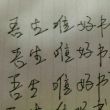 吾生唯好书
吾生唯好书
吾生唯好书
吾生唯好书